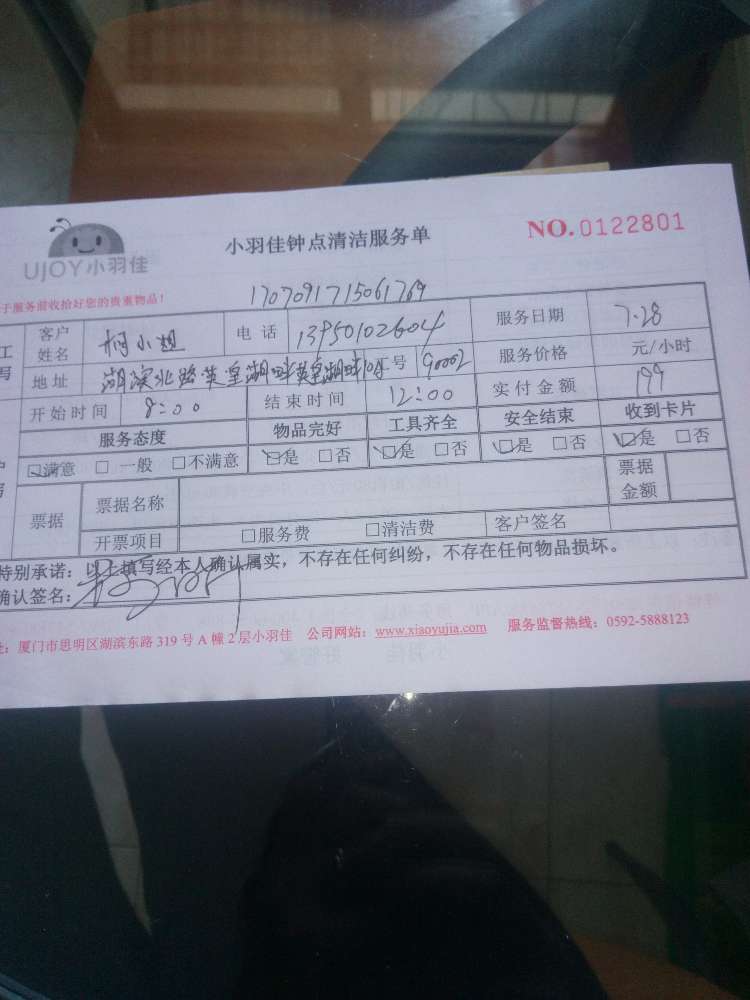 UJOY小羽佳
小羽佳钟点清洁服务单
NO.0122801
于服务前收拾好您的贵重物品！
1707091715061769
客户姓名 柯小姐 电话 13950102604 服务日期 7.28
地址 湖滨北路 工号 90002 服务价格 元/小时
开始时间 8:00 结束时间 12:00 实付金额 199
服务态度 物品完好 工具齐全 安全结束 收到卡片
☑满意 □一般 □不满意 ☑是 □否 ☑是 □否 ☑是 □否 ☑是 □否
票据 票据名称 票据金额
开票项目 □服务费 □清洁费 客户签名
特别承诺：以上填写经本人确认属实，不存在任何纠纷，不存在任何物品损坏。
确认签名：
：厦门市思明区湖滨东路 319 号 A 幢 2 层小羽佳 公司网站：www.xiaoyujia.com 服务监督热线：0592-5888123